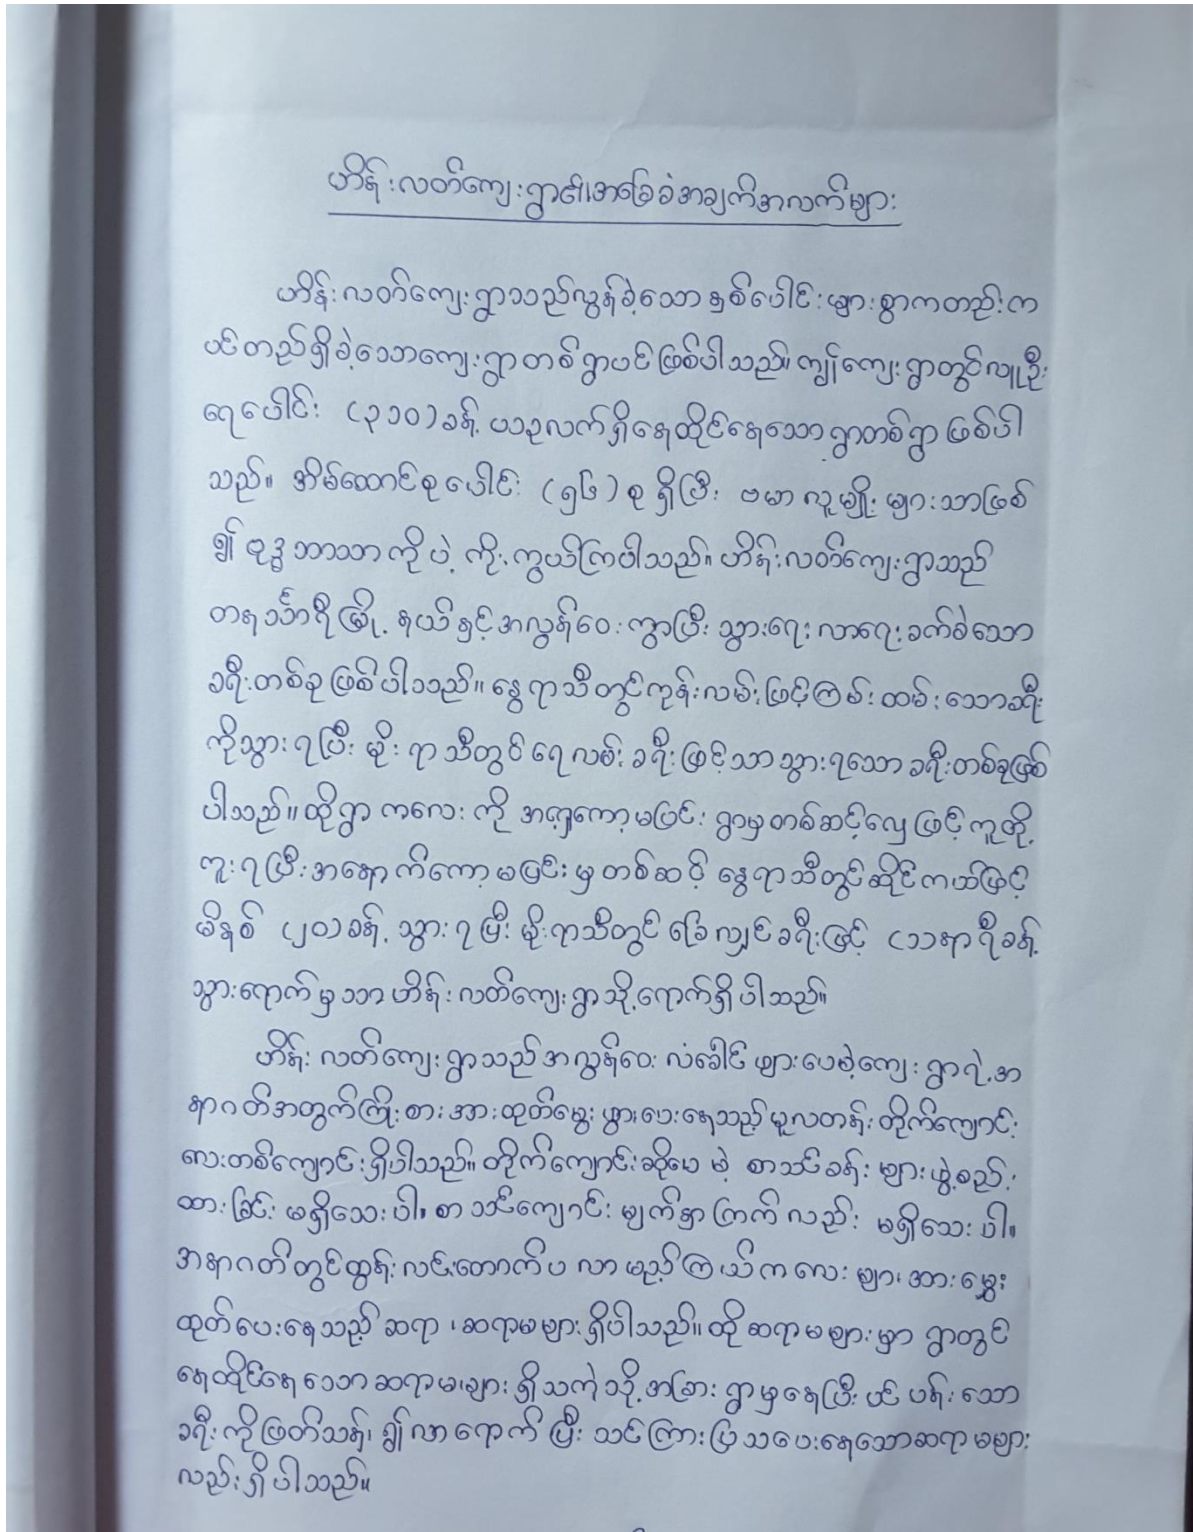 ဟိန်းလတ်ကျေးရွာ၏အခြေခံအချက်အလက်များ
ဟိန်းလတ်ကျေးရွာသည်လွန်ခဲ့သောနှစ်ပေါင်းများစွာကတည်းက
ပင်တည်ရှိခဲ့သောကျေးရွာတစ်ရွာပင်ဖြစ်ပါသည်။ ကျွန်ုပ်ကျေးရွာတွင်လူဦး
ရေပေါင်း (၃၁၀)ခန့် ယခုလက်ရှိနေထိုင်နေသောရွာတစ်ရွာဖြစ်ပါ
သည်။ အိမ်ထောင်စုပေါင်း (၅၆)စု ရှိပြီး ဗမာလူမျိုးများသာဖြစ်
၍ ဗုဒ္ဓဘာသာကိုပဲ့ ကိုးကွယ်ကြပါသည်။ ဟိန်းလတ်ကျေးရွာသည်
တနင်္သာရီမြို့နယ်နှင့်အလွန်ဝေးကွာပြီး သွားရေးလာရေးခက်ခဲသော
ခရီးတစ်ခုဖြစ်ပါသည်။ နွေရာသီတွင်ကုန်းလမ်းဖြင့်ကြမ်းထမ်းသောခရီး
ကိုသွားရပြီး မိုးရာသီတွင်ရေလမ်းခရီးဖြင့်သာသွားရသောခရီးတစ်ခုဖြစ်
ပါသည်။ ထိုရွာကလေးကို အရှေ့ကော့မပြင်းရွာမှတစ်ဆင့်လှေဖြင့်ကူတို့
ကူးရပြီးအနောက်ကော့မပြင်းမှတစ်ဆင့် နွေရာသီတွင်ဆိုင်ကယ်ဖြင့်
မိနစ် (၂၀)ခန့်သွားရပြီး မိုးရာသီတွင်ခြေလျင်ခရီးဖြင့် (၁)နာရီခန့်
သွားရောက်မှသာဟိန်းလတ်ကျေးရွာသို့ရောက်ရှိပါသည်။
ဟိန်းလတ်ကျေးရွာသည်အလွန်ဝေးလံခေါင်ဖျားပေမဲ့ကျေးရွာရဲ့အ
နာဂတ်အတွက်ကြိုးစားအားထုတ်မွေးဖွားပေးနေသည့်မူလတန်းတိုက်ကျောင်း
လေးတစ်ကျောင်းရှိပါသည်။ တိုက်ကျောင်းဆိုပေမဲ့ စာသင်ခန်းများဖွဲ့စည်း
ထားခြင်း မရှိသေးပါ။ စာသင်ကျောင်းမျက်နှာကြက်လည်း မရှိသေးပါ။
အနာဂတ်တွင်ထွန်းလင်းတောက်ပလာမည့်ကြယ်ကလေးများအားမွေး
ထုတ်ပေးနေသည့်ဆရာ၊ ဆရာမများရှိပါသည်။ ထိုဆရာမများမှာ ရွာတွင်
နေထိုင်နေသောဆရာမများရှိသကဲ့သို့အခြားရွာမှနေပြီး ပင်ပန်းသော
ခရီးကိုဖြတ်သန်း၍လာရောက်ပြီး သင်ကြားပြသပေးနေသောဆရာမများ
လည်းရှိပါသည်။